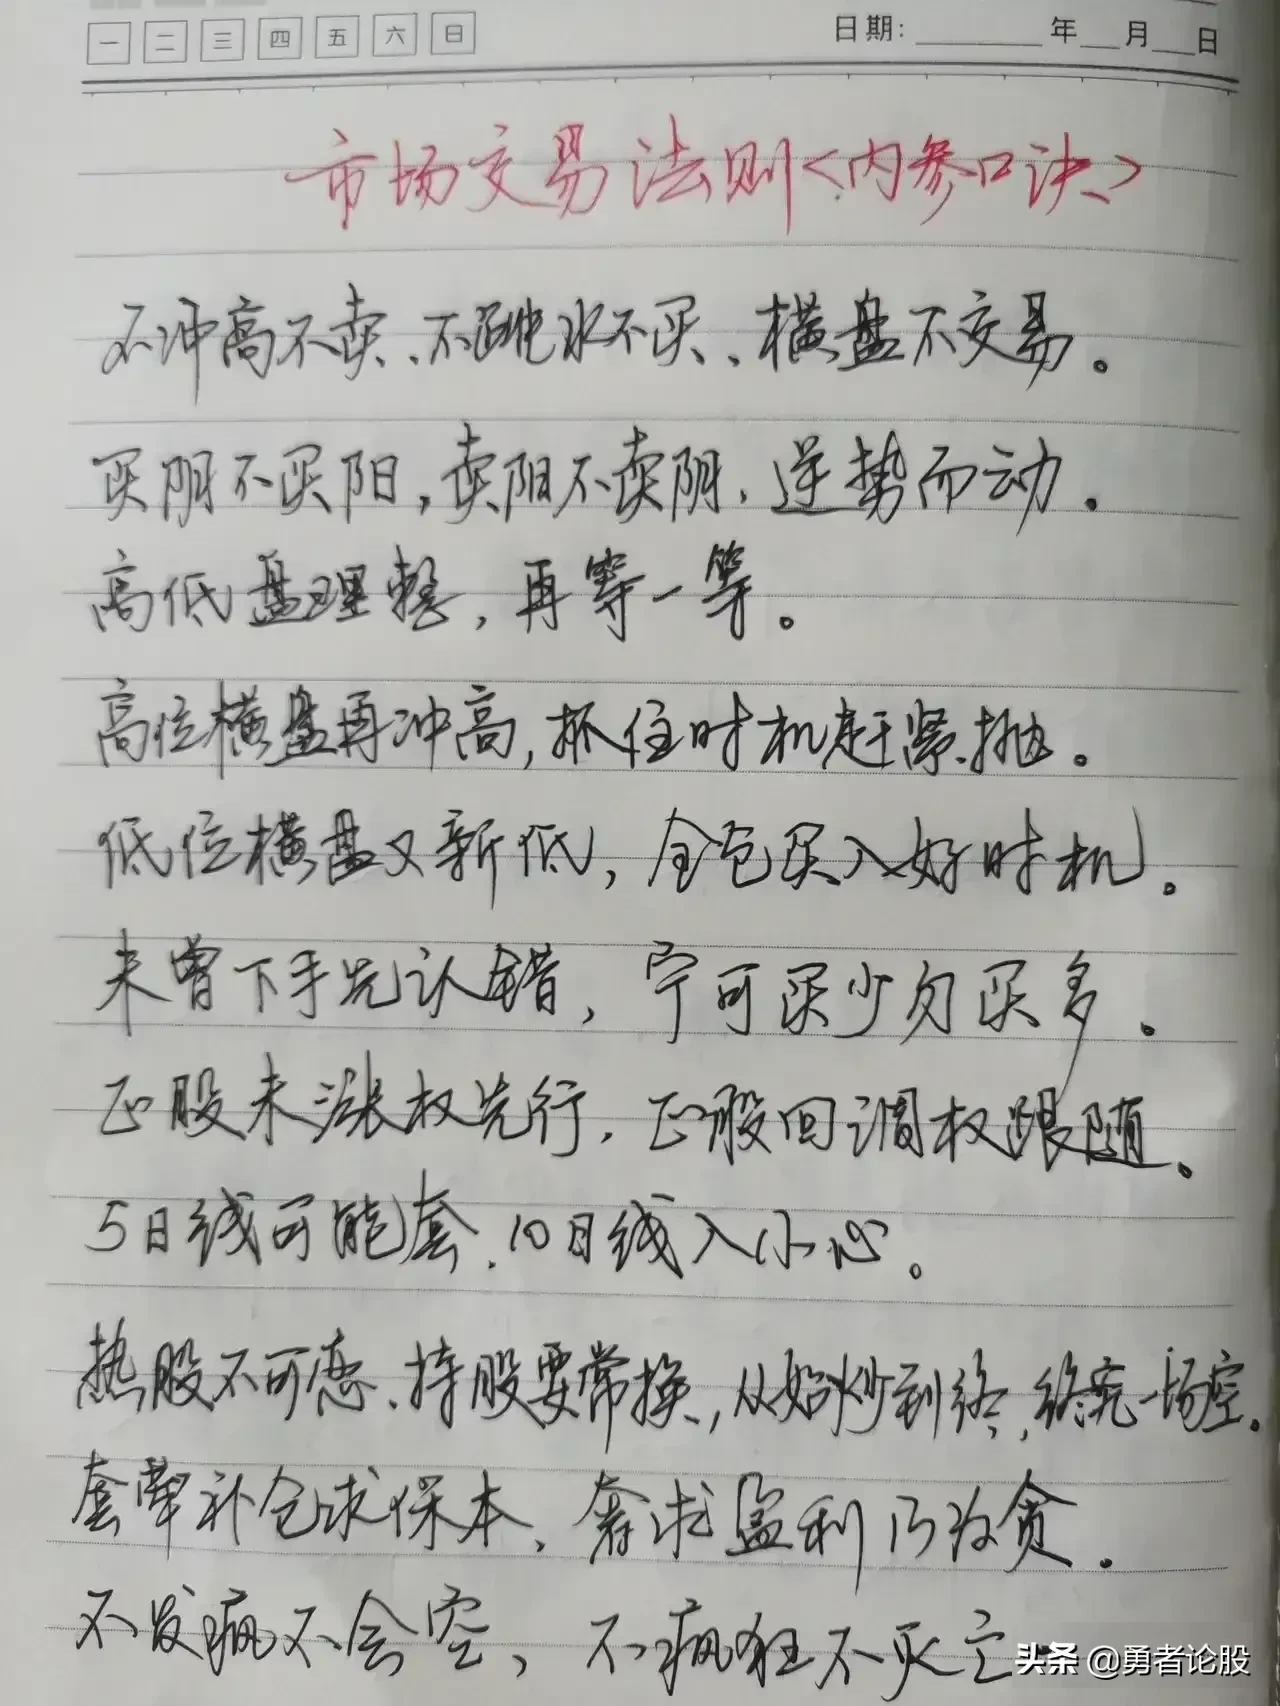 一 二 三 四 五 六 日 日期: 年 月 日
市场交易法则<内参口诀>
不冲高不卖、不跳水不买、横盘不交易。
买阴不买阳,卖阳不卖阴,逆势而动。
高低盘理整,再等一等。
高位横盘再冲高,抓住时机赶紧抛。
低位横盘又新低,全仓买入好时机。
未曾下手先认错,宁可买少勿买多。
正股未涨权先行,正股回调权跟随。
5日线可能套,10日线入小心。
热股不可恋、持股要常换,从始炒到终,终究一场空。
套牢补仓求保本,奢求盈利乃为贪。
不发疯不会空,不疯狂不灭亡
头条 @勇者论股